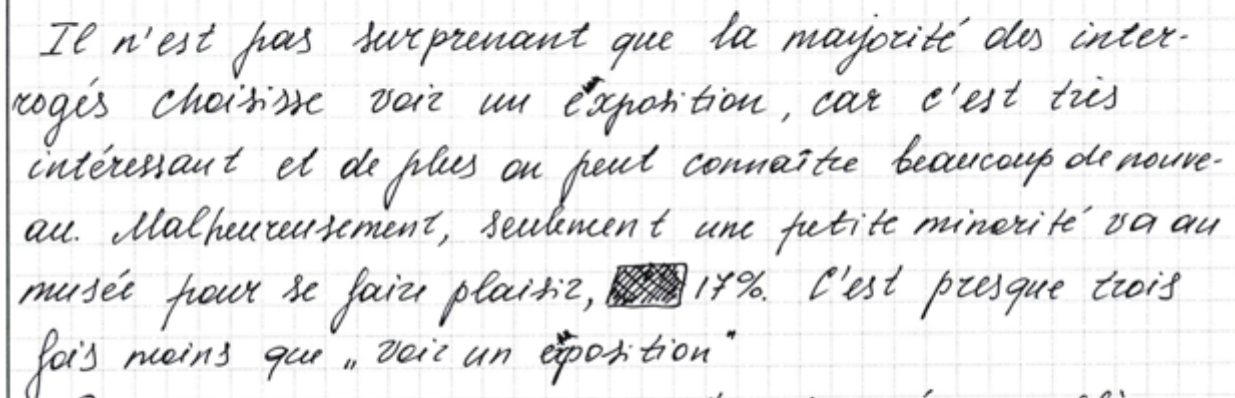 Il n'est pas surprenant que la majorité des inter-
rogés choisisse voir un exposition, car c'est très
intéressant et de plus on peut connaître beaucoup de nouve-
au. Malheureusement, seulement une petite minorité va au
musée pour se faire plaisir, 17%. C'est presque trois
fois moins que „voir un exposition"